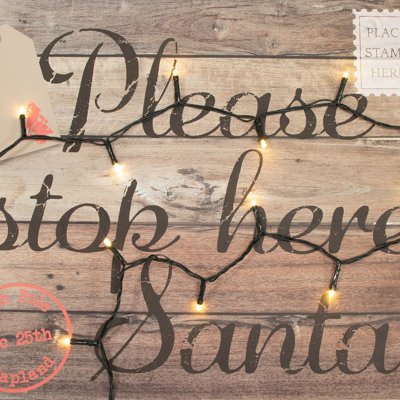 Please
stop here
Santa
PLACE
STAMP
HERE
c 25th
apland